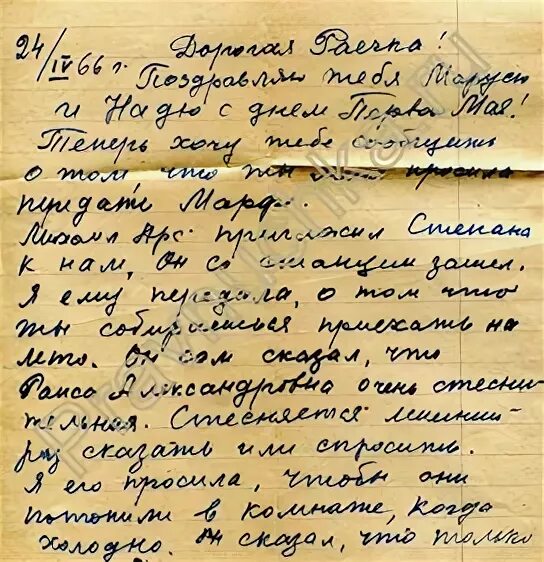 24/IV 66 г. Дорогая Раечка!
Поздравляю тебя Марусю
и Надю с днем Перва Мая!
Теперь хочу тебе сообщить
о том, что ты просила
передать Марфе.
Михаил Арс пригласил Степана
к нам, он со станции зашел.
Я ему передала, о том что
ты собираешься приехать на
лето. Он сам сказал, что
Раиса Александровна очень стесни
тельная. Стесняется лишний
раз сказать или спросить.
Я его просила, чтобы они
потопили в комнате, когда
холодно. Он сказал, что только